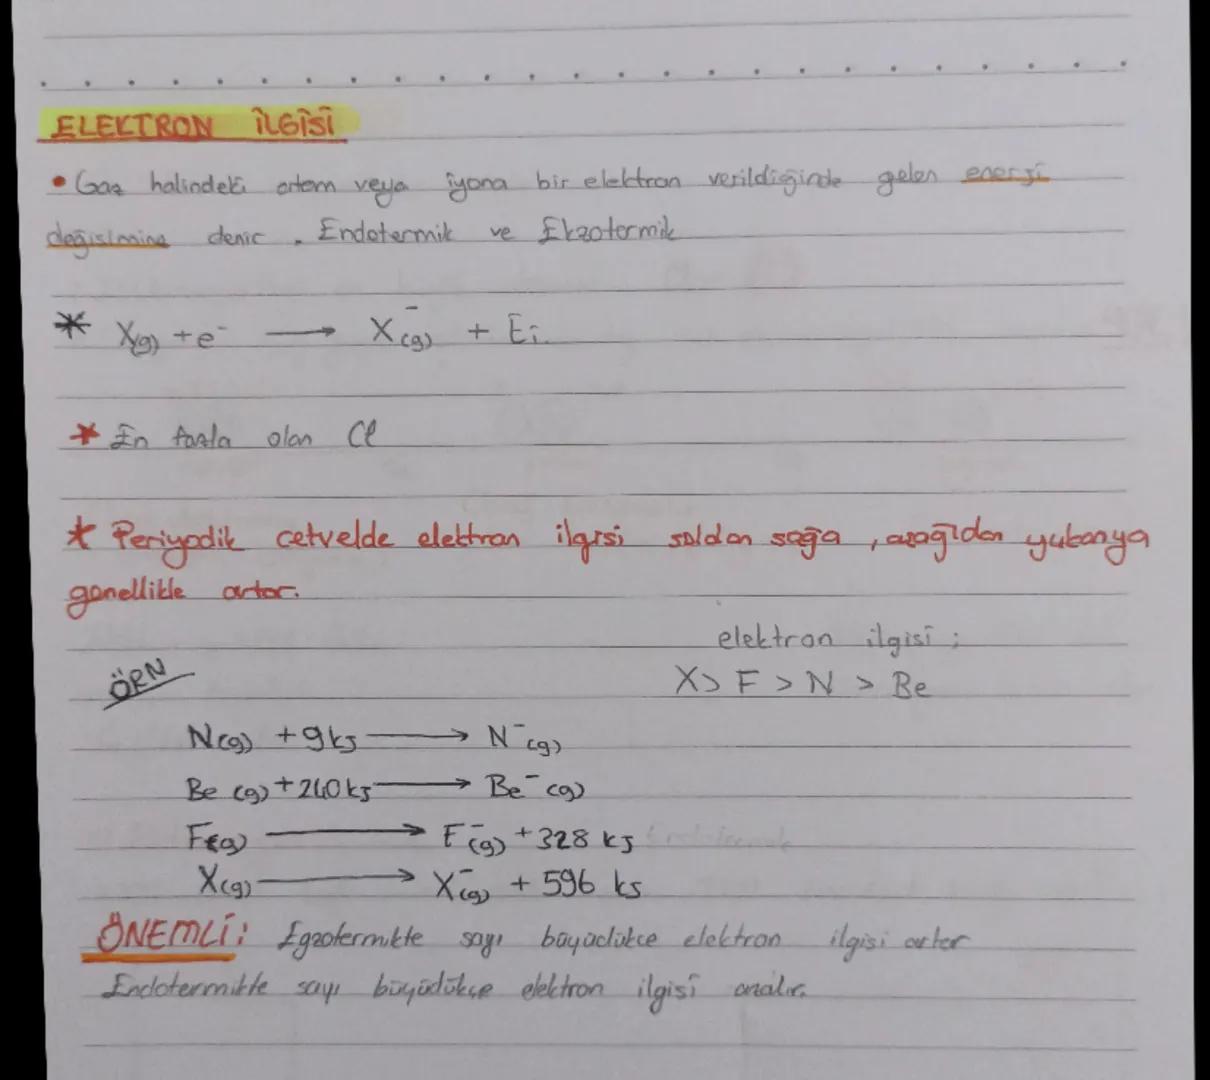 ELEKTRON İLGİSİ
• Gaz halindeki artom veya iyona bir elektron verildiğinde gelen enerji
değişimine denir. Endotermik ve Ekzotermik
* X(g) + e⁻ → X⁻(g) + Eİ
* En fazla olan Cl
* Periyodik cetvelde elektron ilgisi soldan sağa, aşağıdan yukarıya
genellikle artar.
elektron ilgisi ;
X > F > N > Be
ÖRN
N(g) + 9 kj → N⁻(g)
Be (g) + 240 kj → Be⁻(g)
F(g) → F⁻(g) + 328 kj
X(g) → X⁻(g) + 596 kj
ÖNEMLİ: Egzotermikte sayı büyüdükçe elektron ilgisi artar
Endotermikte sayı büyüdükçe elektron ilgisi azalır.